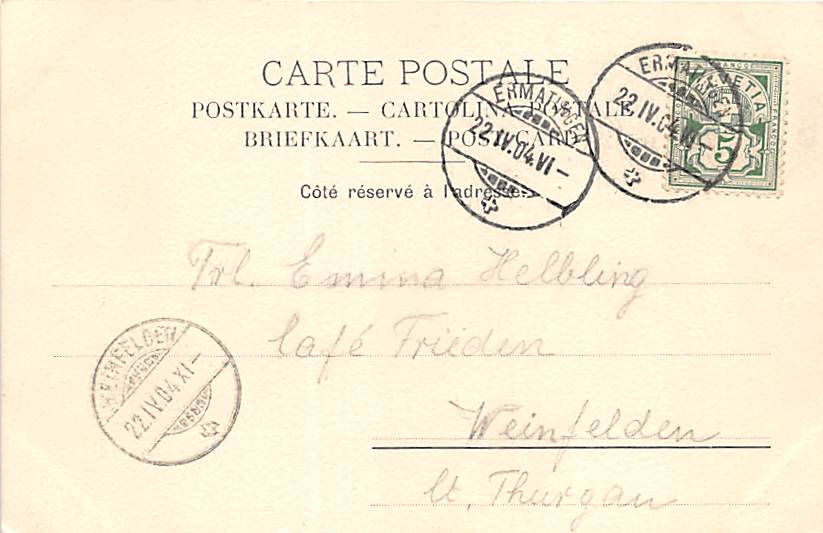 CARTE POSTALE
POSTKARTE. — CARTOLINA POSTALE
BRIEFKAART. — POST CARD
Côté réservé à l'adresse.
ERMATINGEN
22.IV.04.VI–
ERMATINGEN
22.IV.04.VI–
HELVETIA
FRANCO
FRANCO
5
Frl. Emma Helbling
Café Frieden
Weinfelden
Ct. Thurgau
WEINFELDEN
22.IV.04.XI–